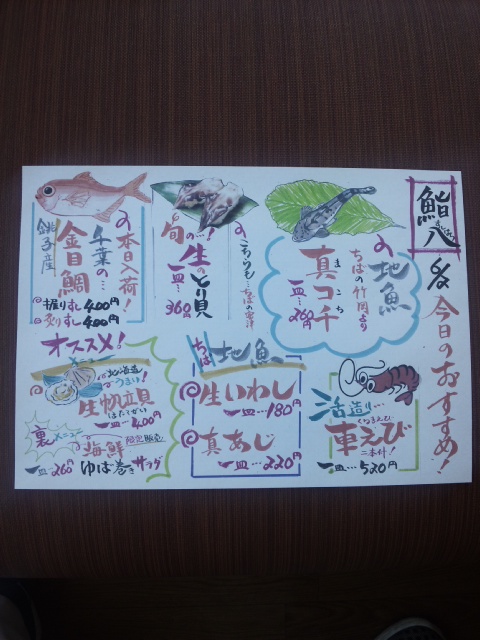 鮨八
6/8 今日のおすすめ!
地魚
ちばの竹岡より
真コチ
まこち
一皿…260円
こちらも…ちばの富津
旬の!
生のとり貝
一皿…360円
本日入荷!
千葉の…
金目鯛
銚子産
握りずし400円
炙りずし400円
活造り…
車えび
くるまえび
二本付!
一皿…520円
ちば地魚
生いわし
一皿…180円
真あじ
一皿…220円
オススメ!
メニュー
北海道
うまい!
生帆立貝
ほたてがい
一皿…400円
裏メニュー
限定販売
海鮮
ゆば巻きサラダ
一皿…260円